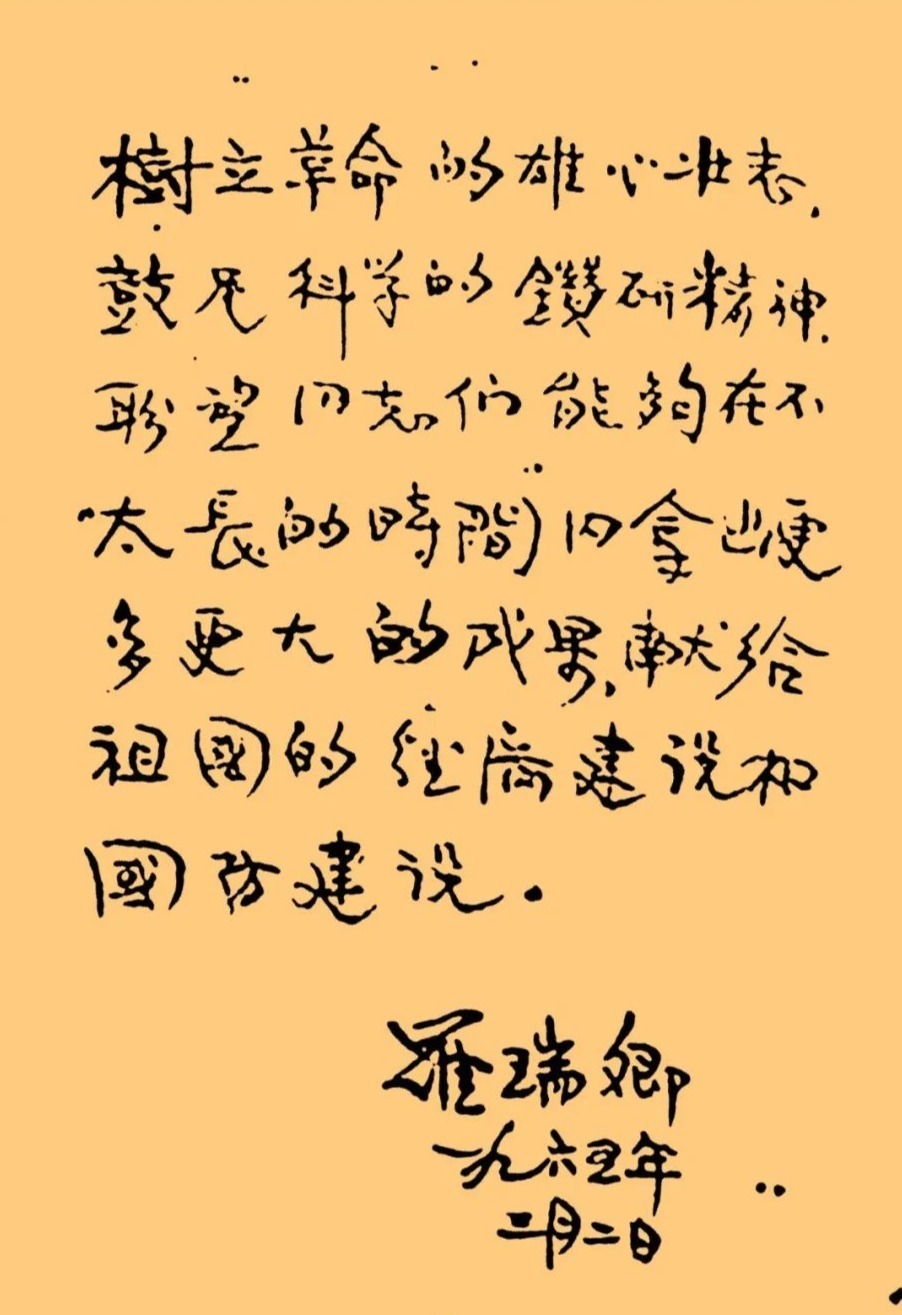 樹立革命的雄心壮志,
鼓足科学的鑽研精神.
盼望同志们能夠在不
太長的時間内拿出更
多更大的成果,献给
祖國的经济建设和
國防建设.
羅瑞卿
一九六五年
二月二日